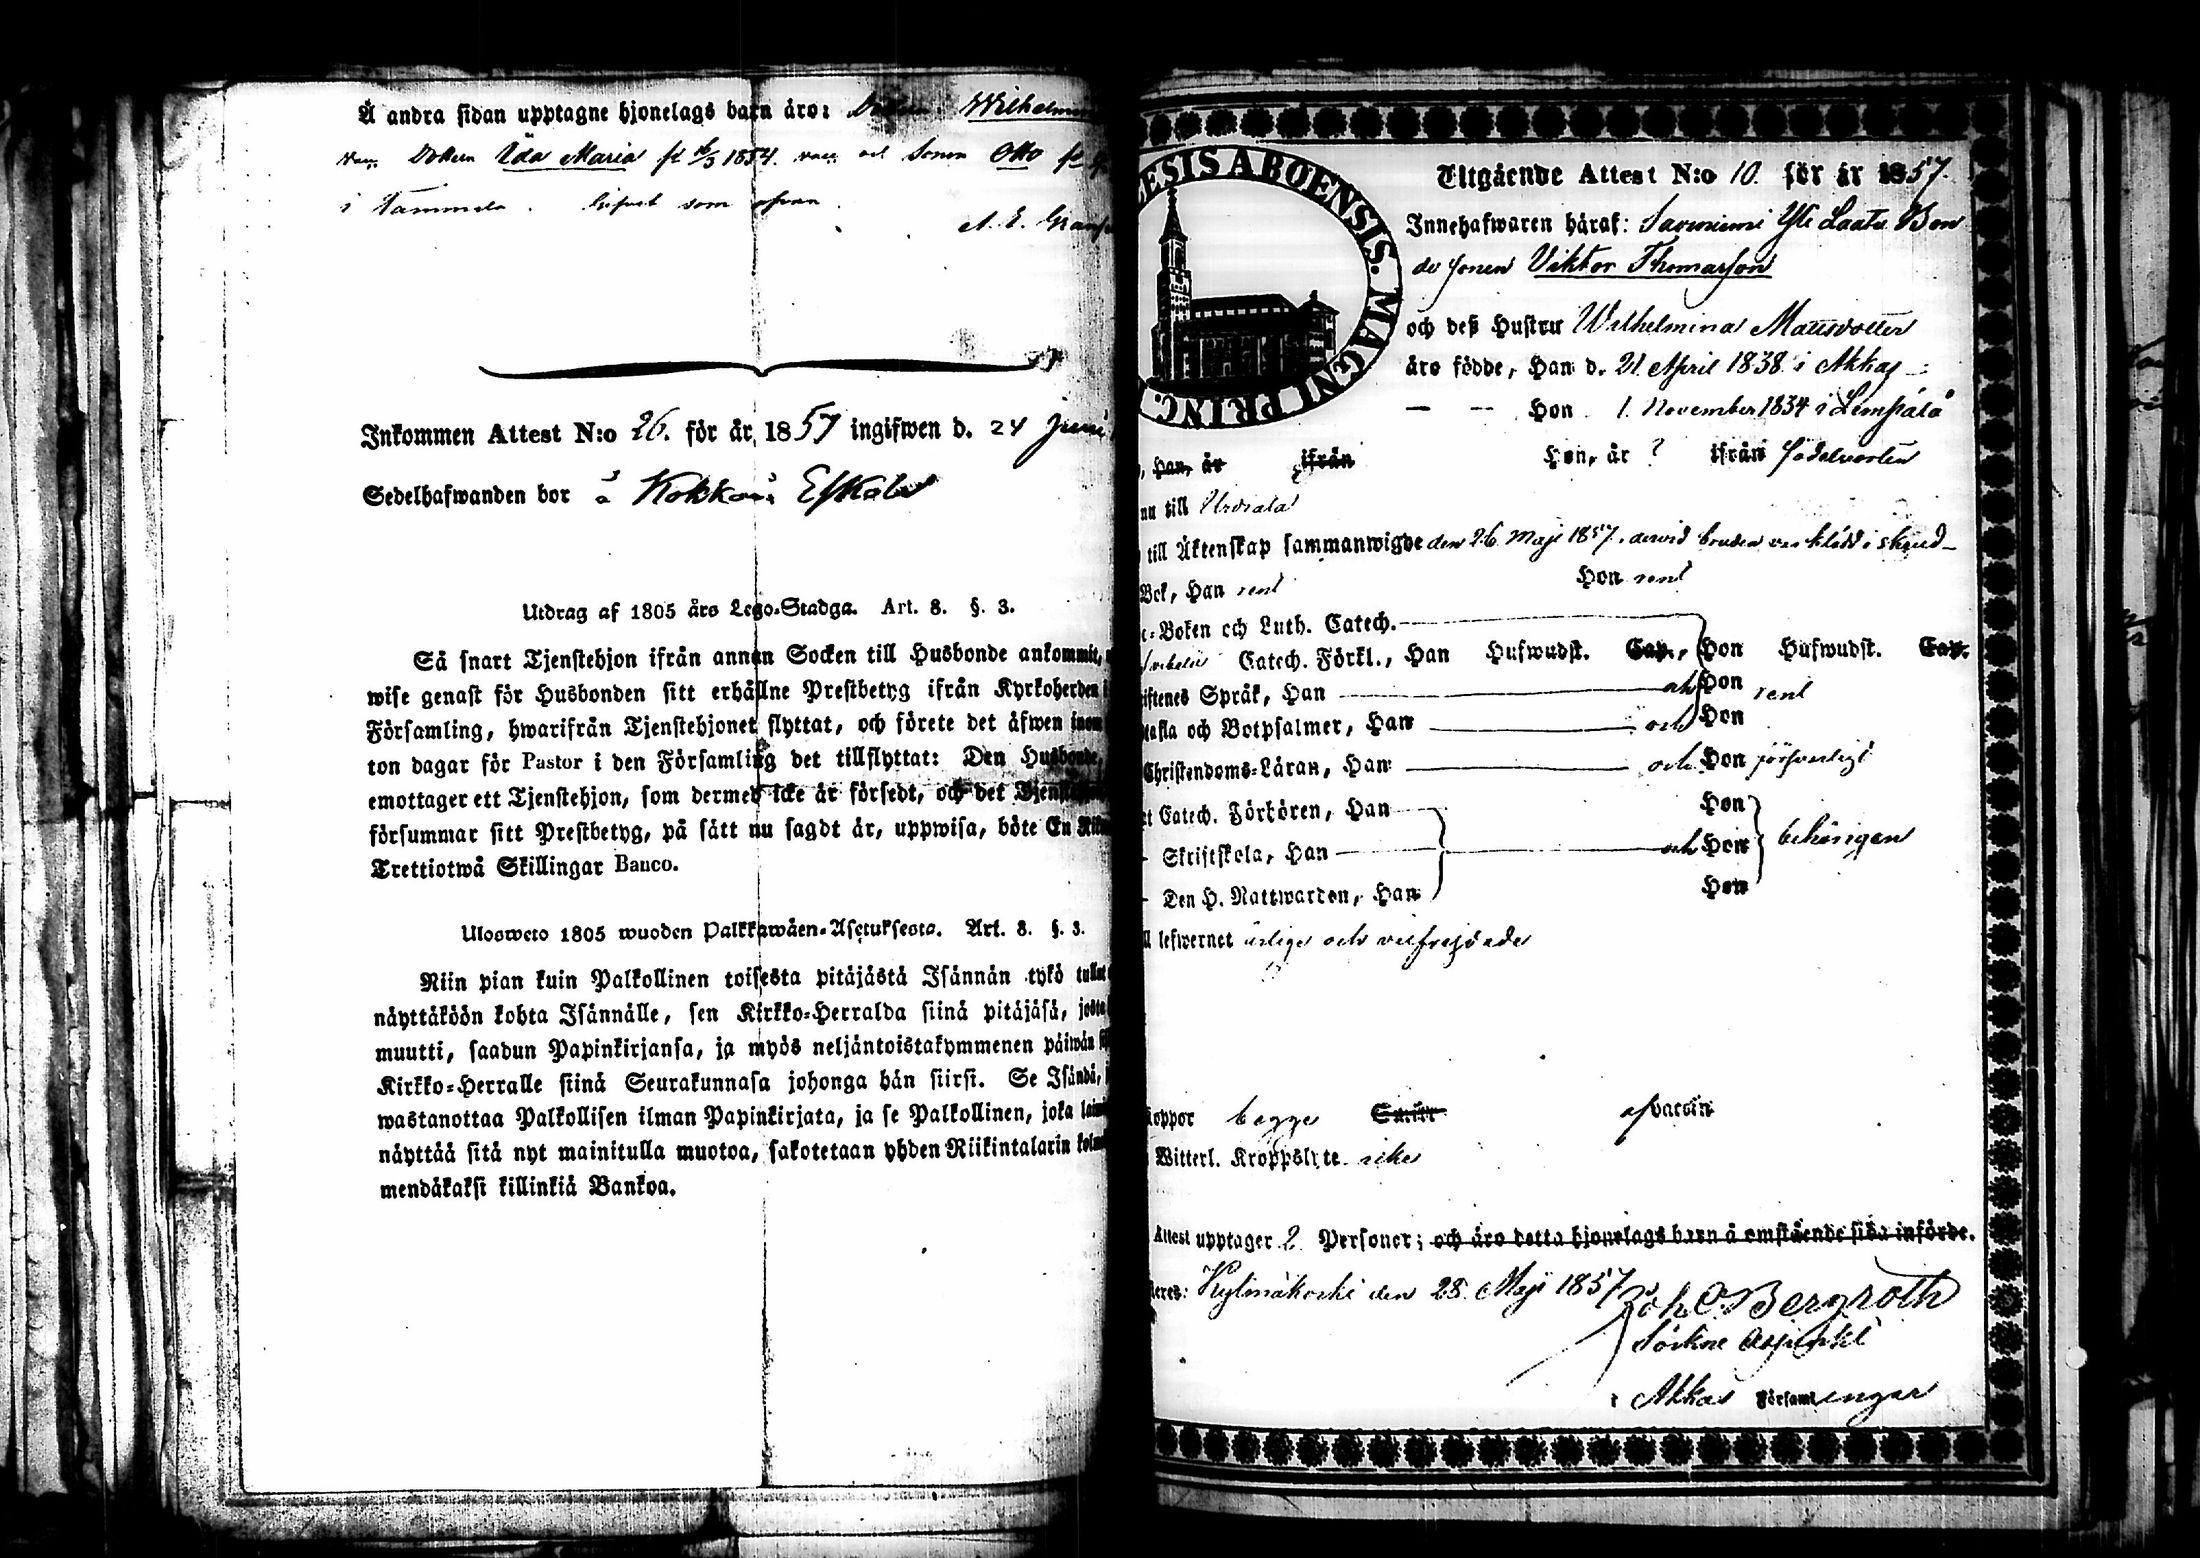 Å andra sidan upptagne hjonelags barn äro: Dottren Wilhelmin
vac. Dottern Ida Maria f. 1854. vac. och Sonen Otto f.
i Tammela. Lefvat som ofvan.
A. E. Granf
Inkommen Attest N:o 26. för år, 1857 ingifwen d. 24 Juni
Sedelhafwanden bor å Kokko Eskola
Utdrag af 1805 års Lego-Stadga. Art. 8. §. 3.
Så snart Tjenstehjon ifrån annan Socken till Husbonde ankommit,
wise genast för Husbonden sitt erhållne Prestbetyg ifrån Kyrkoherden i
Församling, hwarifrån Tjenstehjonet flyttat, och förete det äfwen inom
ton dagar för Pastor i den Församling det tillflyttat: Den Husbonde,
emottager ett Tjenstehjon, som dermed icke är försedt, och det Tjenstehjon
försummar sitt Prestbetyg, på sätt nu sagdt är, uppwisa, böte En Riks
Trettiotwå Skillingar Banco.
Ulosweto 1805 wuoden Palkkawäen-Asetuksesta. Art. 8. §. 3.
Niin pian kuin Palkollinen toisesta pitäjästä Isännän tykö tullut
näyttäköön kohta Isännälle, sen Kirkko-Herralda siinä pitäjäsä, josta
muutti, saadun Papinkirjansa, ja myös neljäntoistakymmenen päiwän
Kirkko-Herralle siinä Seurakunnasa johonga hän siirsi. Se Isändä,
wastanottaa Palkollisen ilman Papinkirjata, ja se Palkollinen, joka laimi
näyttää sitä nyt mainitulla muotoa, sakotetaan yhden Riikintalarin kolme
mendäkaksi killinkiä Bankoa.
ESIS ABOENSIS. MAGNI PRINC.
Utgående Attest N:o 10. för år 1857.
Innehafwaren häraf: Savoniemi Yli Laata Bon
de sonen Viktor Thomasson
och deß Hustru Wilhelmina Mattsdotter
äro födde, Han d. 21. April 1838 i Akkas
Hon 1. November 1834 i Lempälä
, Han, är ifrån Hon, är ? ifrån födelseorten
nu till Urdiala
till Äktenskap sammanwigde den 26. Maji 1857. dervid bruden var klädd i skrud
Bok, Han rent Hon rent
c-Boken och Luth. Catech.
Catech. Förkl., Han Hufwudst. Cap., Hon Hufwudst. Cap.
riftenes Språk, Han och Hon rent
tafla och Botpsalmer, Han och Hon
Christendoms-Läran, Han och Hon försvarligt
et Catech. Förhören, Han Hon
Skriftskola, Han och Hon behörigen
Den H. Nattwarden, Han Hon
ll lefwernet ärlige och välfrejdade
koppor begge Smitt af vaccin
Witterl. Kroppslyte icke
Attest upptager 2 Personer; och äro detta hjonelags barn å omstående sida införde.
teres: Kylmäkoski den 28. Maji 1857.
Joh. C. Bergroth
Sockne Adjunkt
i Akkas Församlingar